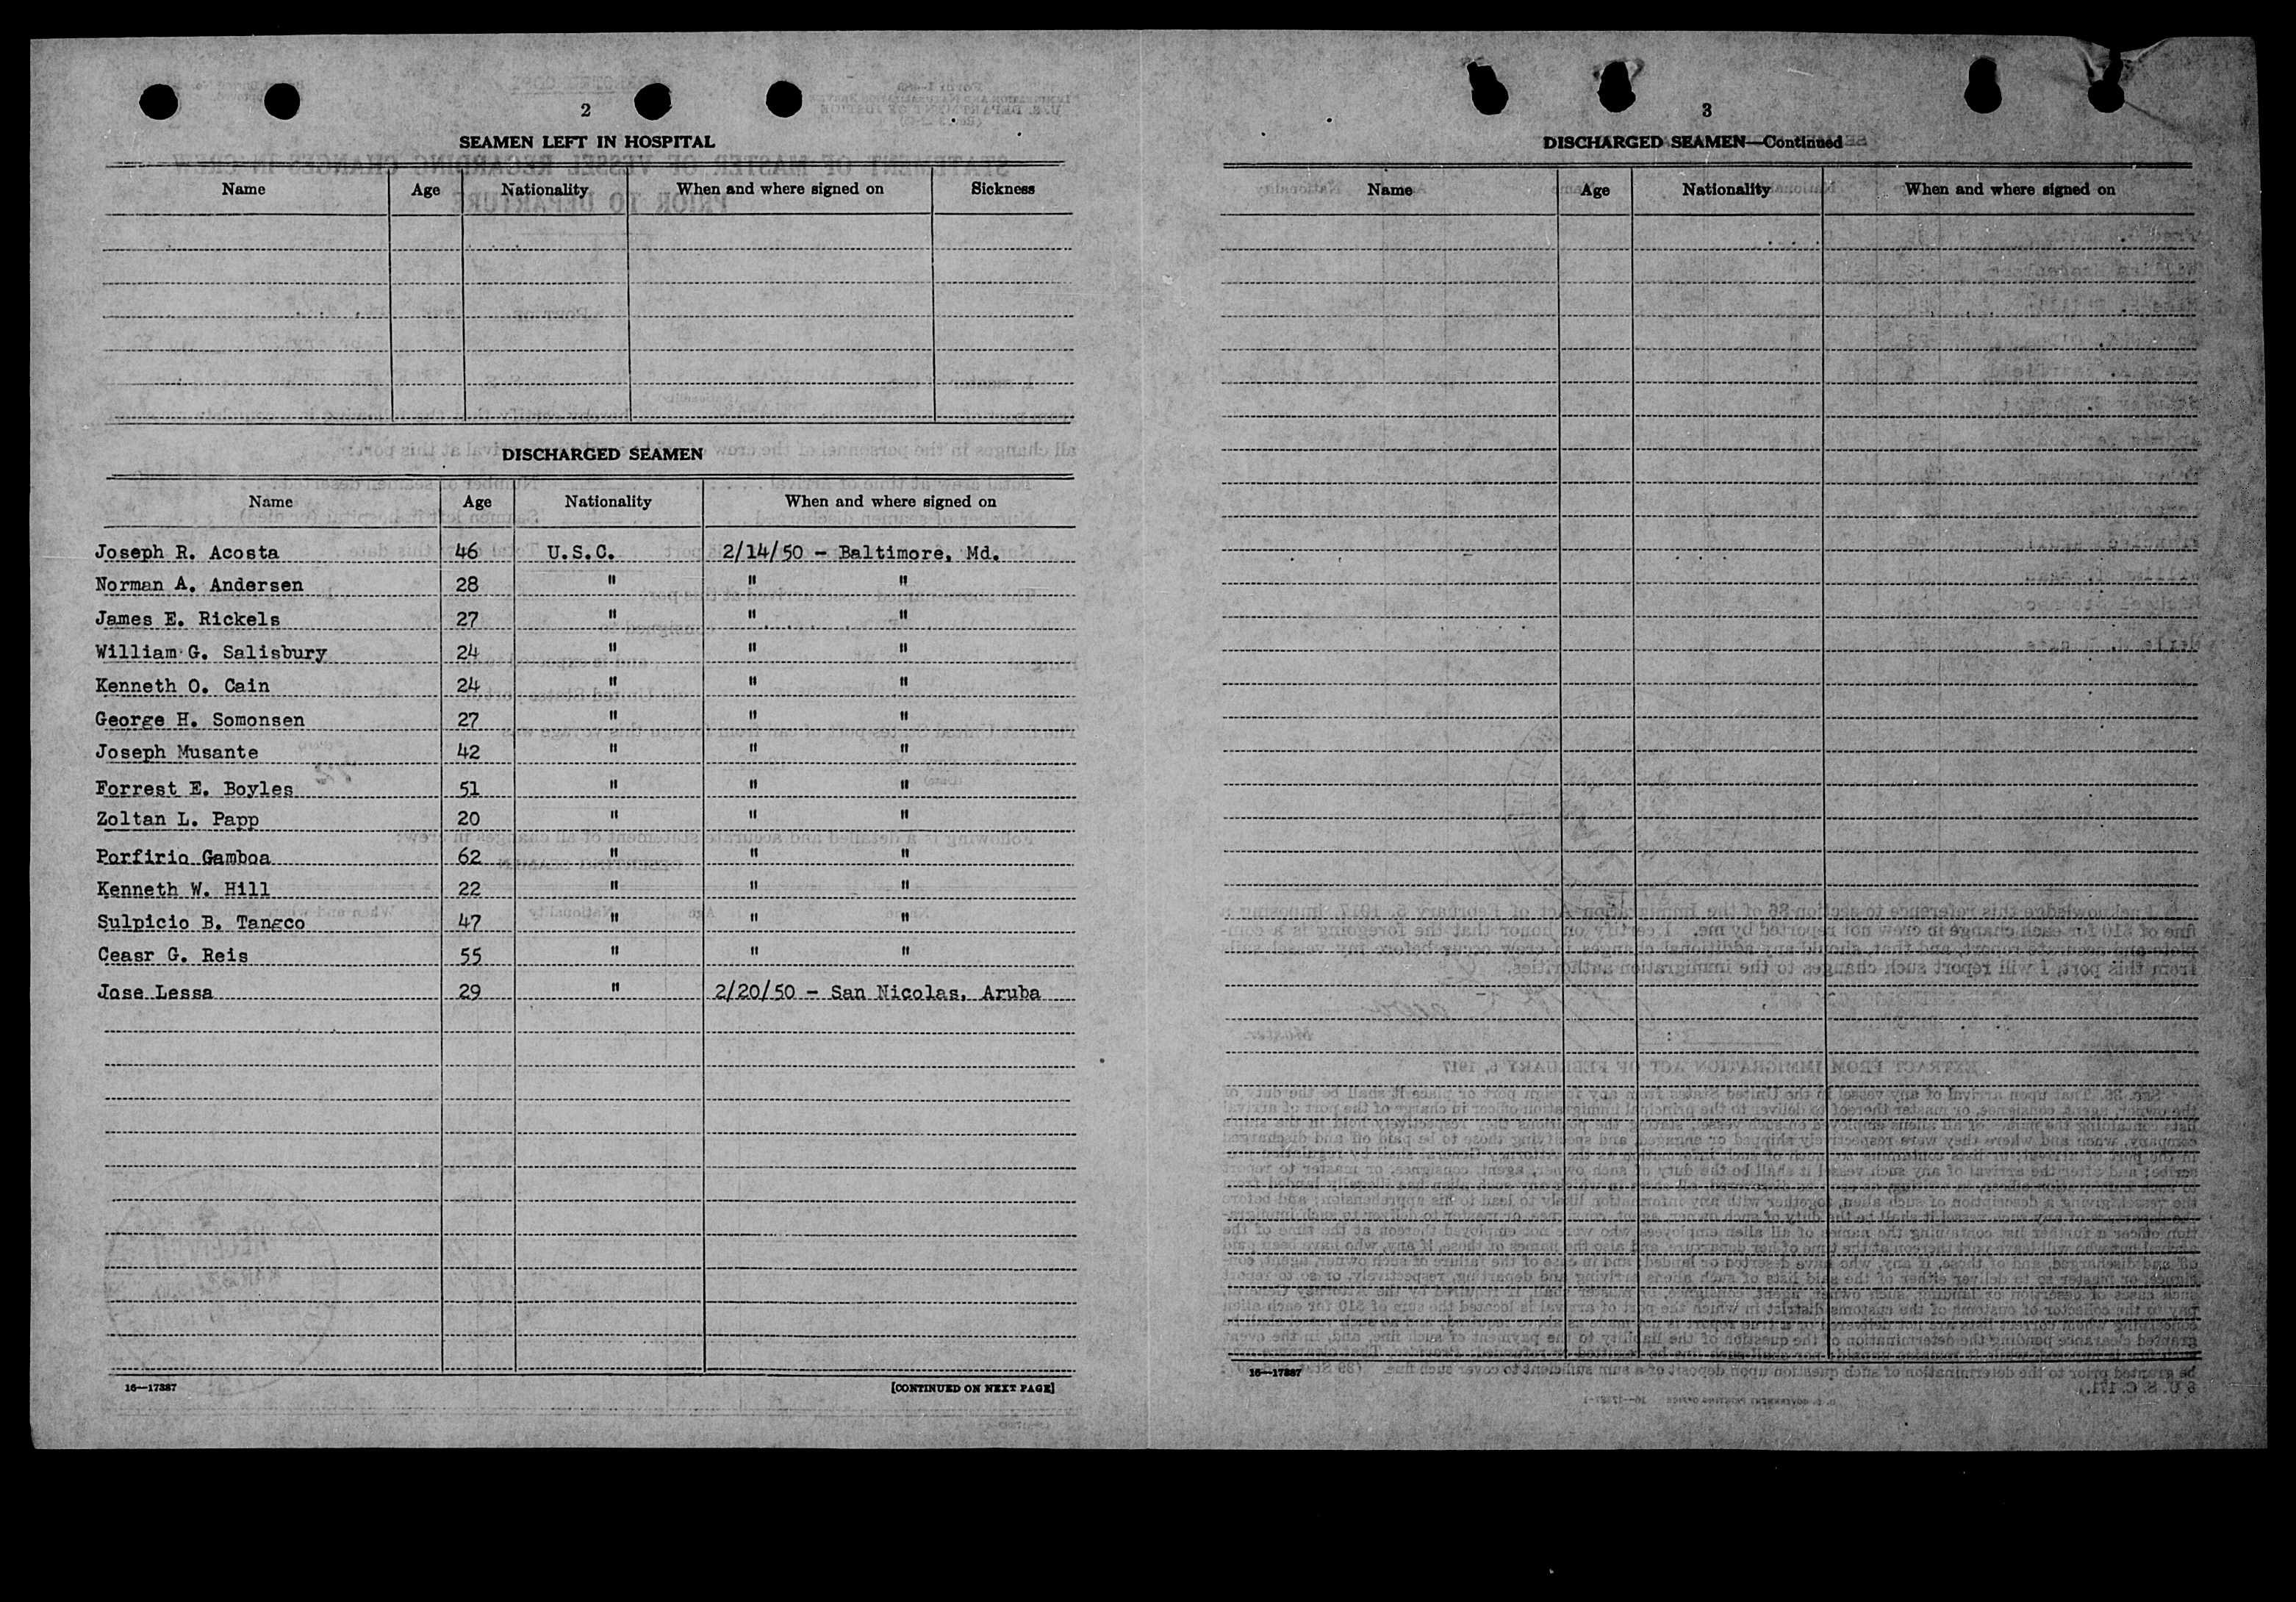 2
SEAMEN LEFT IN HOSPITAL
Name Age Nationality When and where signed on Sickness
DISCHARGED SEAMEN
Name Age Nationality When and where signed on
Joseph R. Acosta 46 U.S.C. 2/14/50 - Baltimore, Md.
Norman A. Andersen 28 " " "
James E. Rickels 27 " " "
William G. Salisbury 24 " " "
Kenneth O. Cain 24 " " "
George H. Somonsen 27 " " "
Joseph Musante 42 " " "
Forrest E. Boyles 51 " " "
Zoltan L. Papp 20 " " "
Porfirio Gamboa 62 " " "
Kenneth W. Hill 22 " " "
Sulpicio B. Tangco 47 " " "
Ceasr G. Reis 55 " " "
Jose Lessa 29 " 2/20/50 - San Nicolas, Aruba
16—17387 [CONTINUED ON NEXT PAGE]
3
DISCHARGED SEAMEN—Continued
Name Age Nationality When and where signed on
16—17387